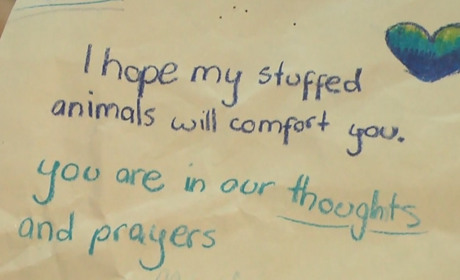 I hope my stuffed
animals will comfort you.
you are in our thoughts
and prayers